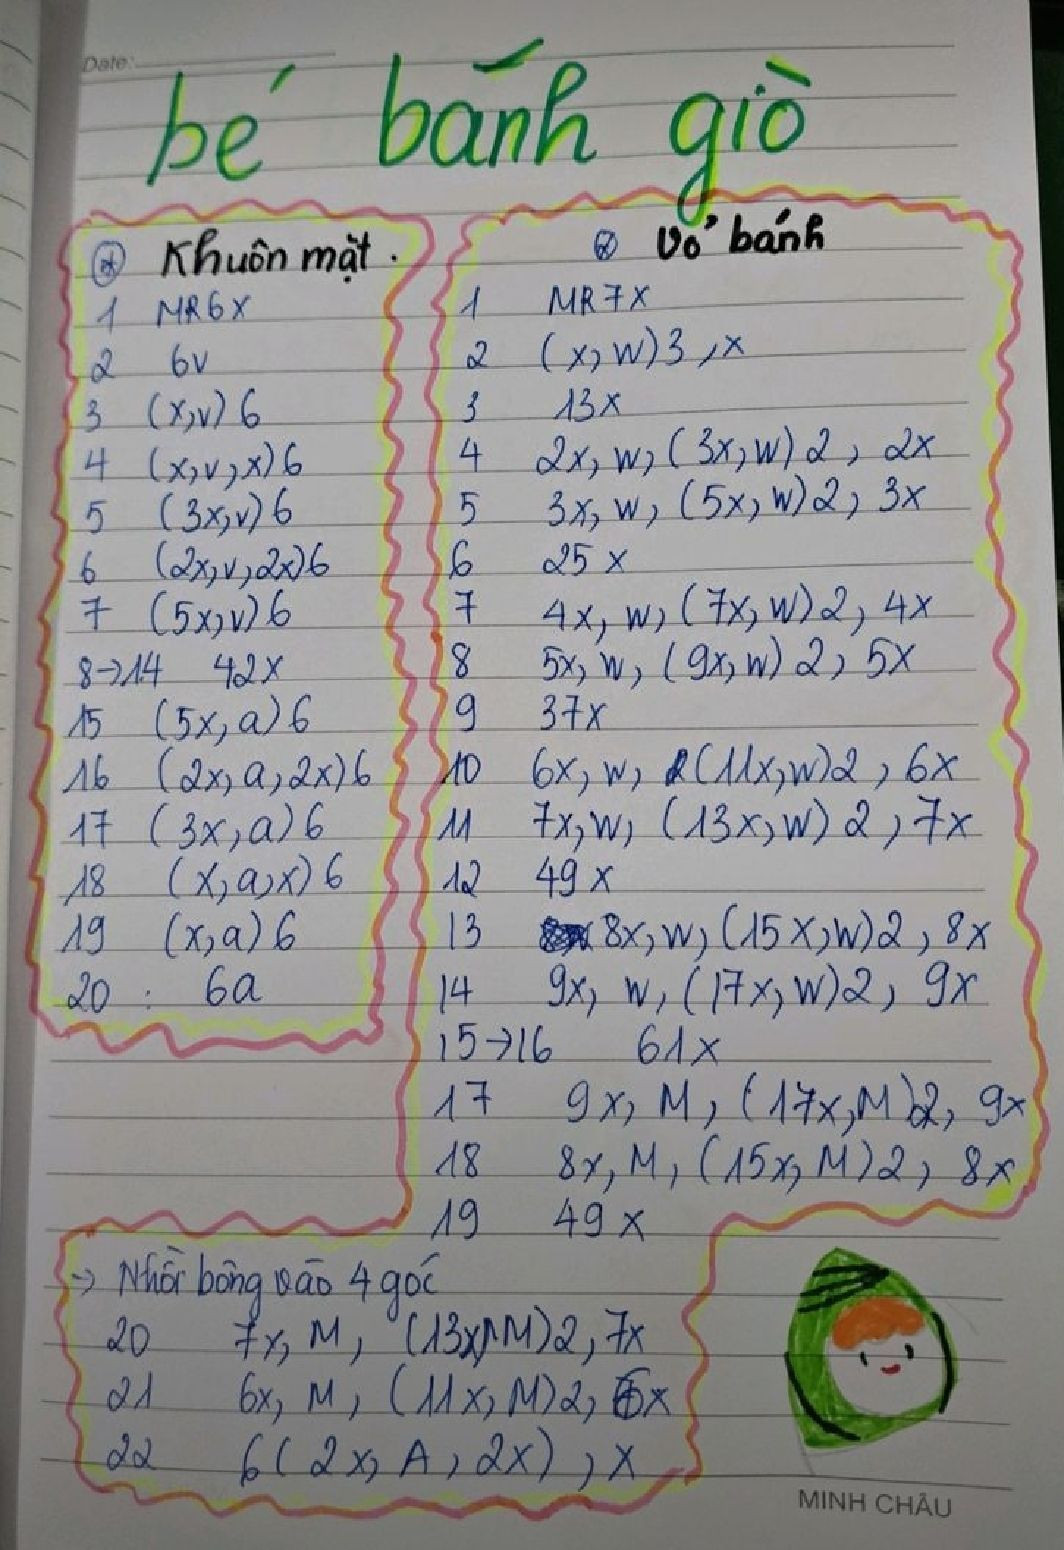 Date:
bé bánh giò
Khuôn mặt.
1 MR6X
2 6v
3 (x,v)6
4 (x,v,x)6
5 (3x,v)6
6 (2x,v,2x)6
7 (5x,v)6
8→14 42x
15 (5x,a)6
16 (2x,a,2x)6
17 (3x,a)6
18 (x,a,x)6
19 (x,a)6
20 : 6a
Vỏ bánh
1 MR7X
2 (x,w)3,x
3 13x
4 2x,w,(3x,w)2, 2x
5 3x,w,(5x,w)2, 3x
6 25x
7 4x,w,(7x,w)2, 4x
8 5x,w,(9x,w)2, 5x
9 37x
10 6x,w,(11x,w)2, 6x
11 7x,w,(13x,w)2, 7x
12 49x
13 8x,w,(15x,w)2, 8x
14 9x,w,(17x,w)2, 9x
15→16 61x
17 9x,M,(17x,M)2, 9x
18 8x,M,(15x,M)2, 8x
19 49x
→ Nhồi bông vào 4 góc
20 7x,M,(13x,M)2, 7x
21 6x,M,(11x,M)2, 6x
22 6(2x,A,2x),x
MINH CHÂU